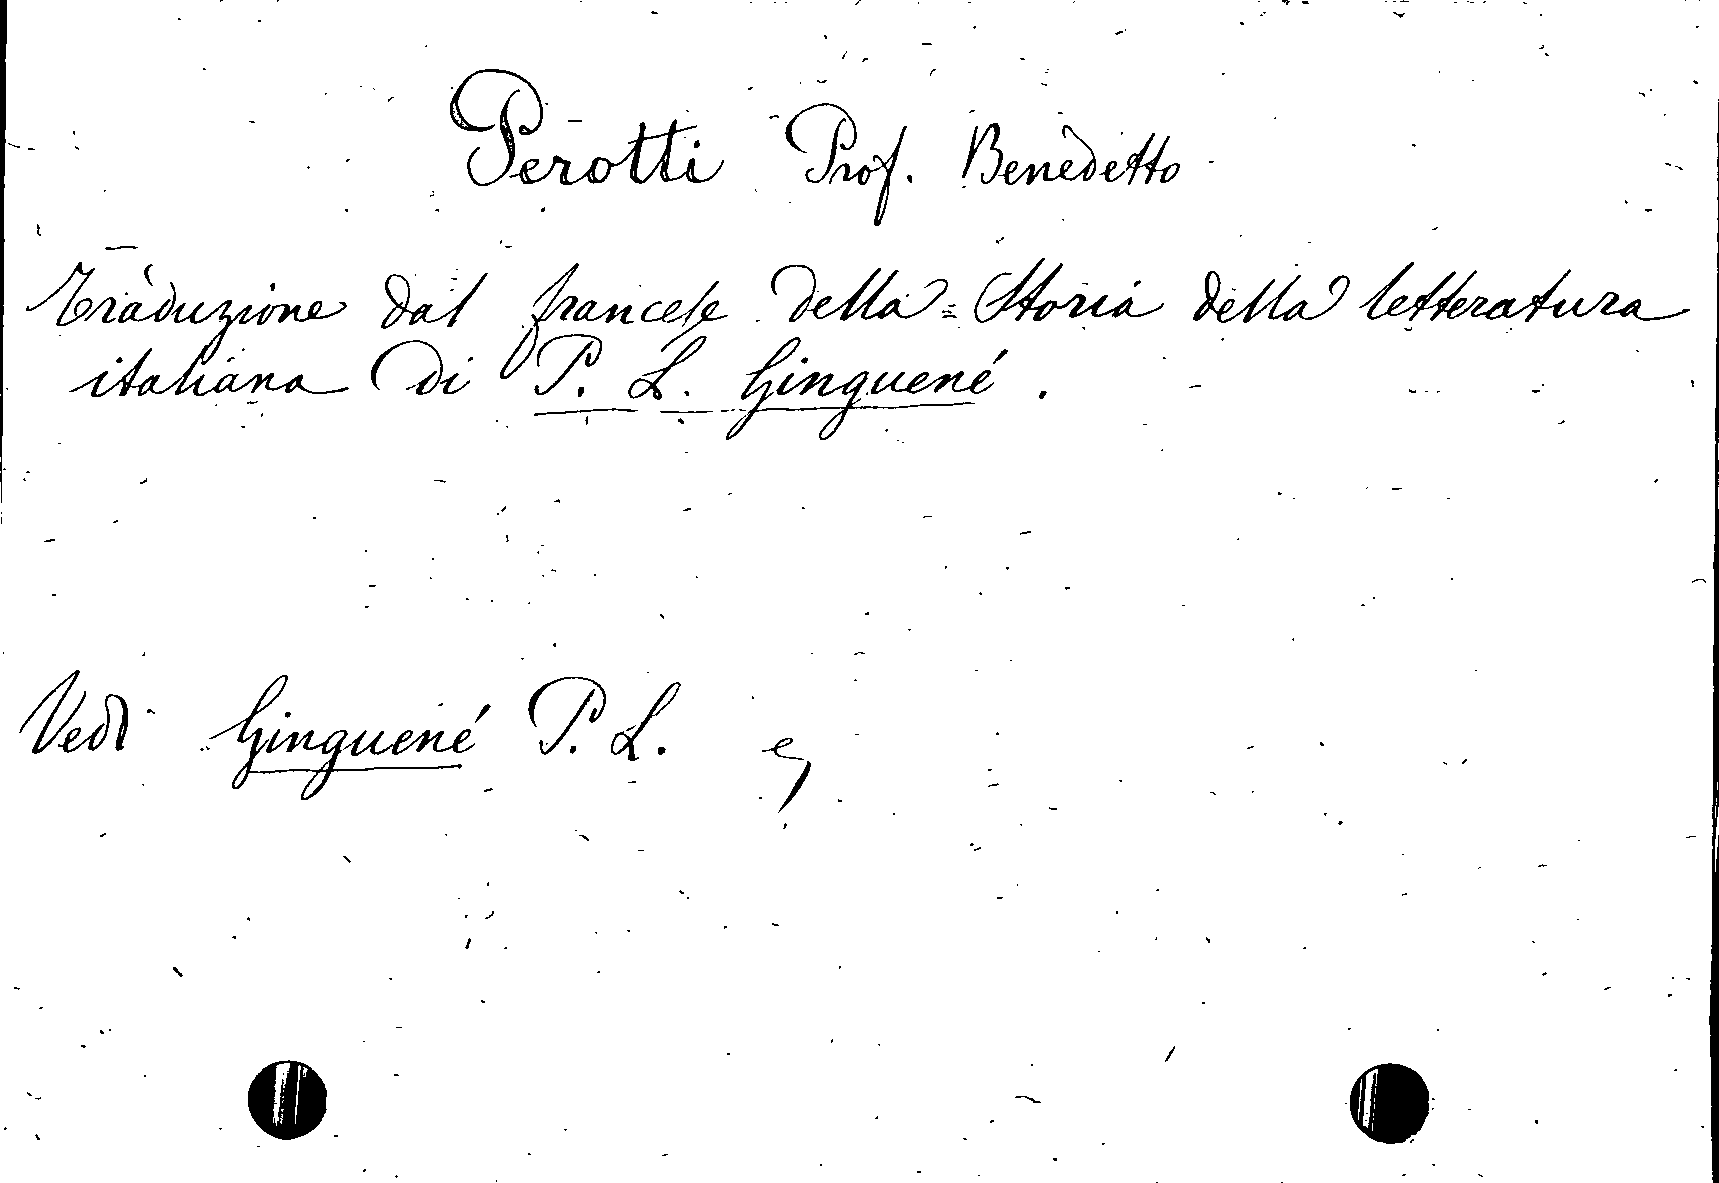 Perotti Prof. Benedetto
Traduzione dal francese della = Storia della letteratura
italiana di P. L. Ginguené.
Vedi Ginguené P. L.